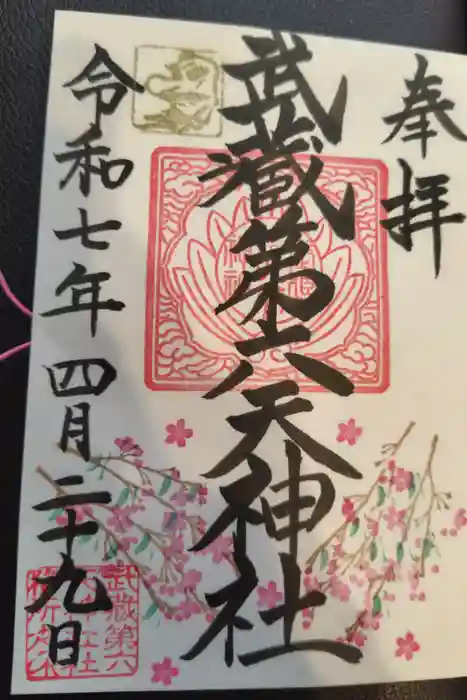 奉拝
武蔵第六天神社
令和七年四月二十九日
武蔵第六